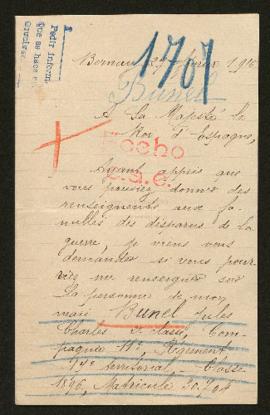 Pedir inform.
que se hace
1707
Bernay
Bunel
A Sa Majesté le
Roi d'Espagne,
Hecho
Ayant appris que
vous pouviez donner des
renseignements aux fa-
milles des disparus de la
guerre, je viens vous
demander si vous pour-
riez me renseigner sur
la personne de mon
mari Bunel Jules
Charles 2e classe, Com-
pagnie 11e, Régiment
territorial, Classe
1896, Matricule